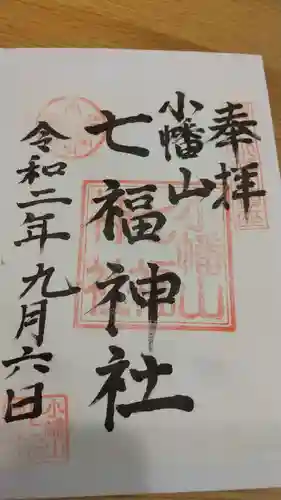 奉拝
小幡山
七福神社
令和二年九月六日